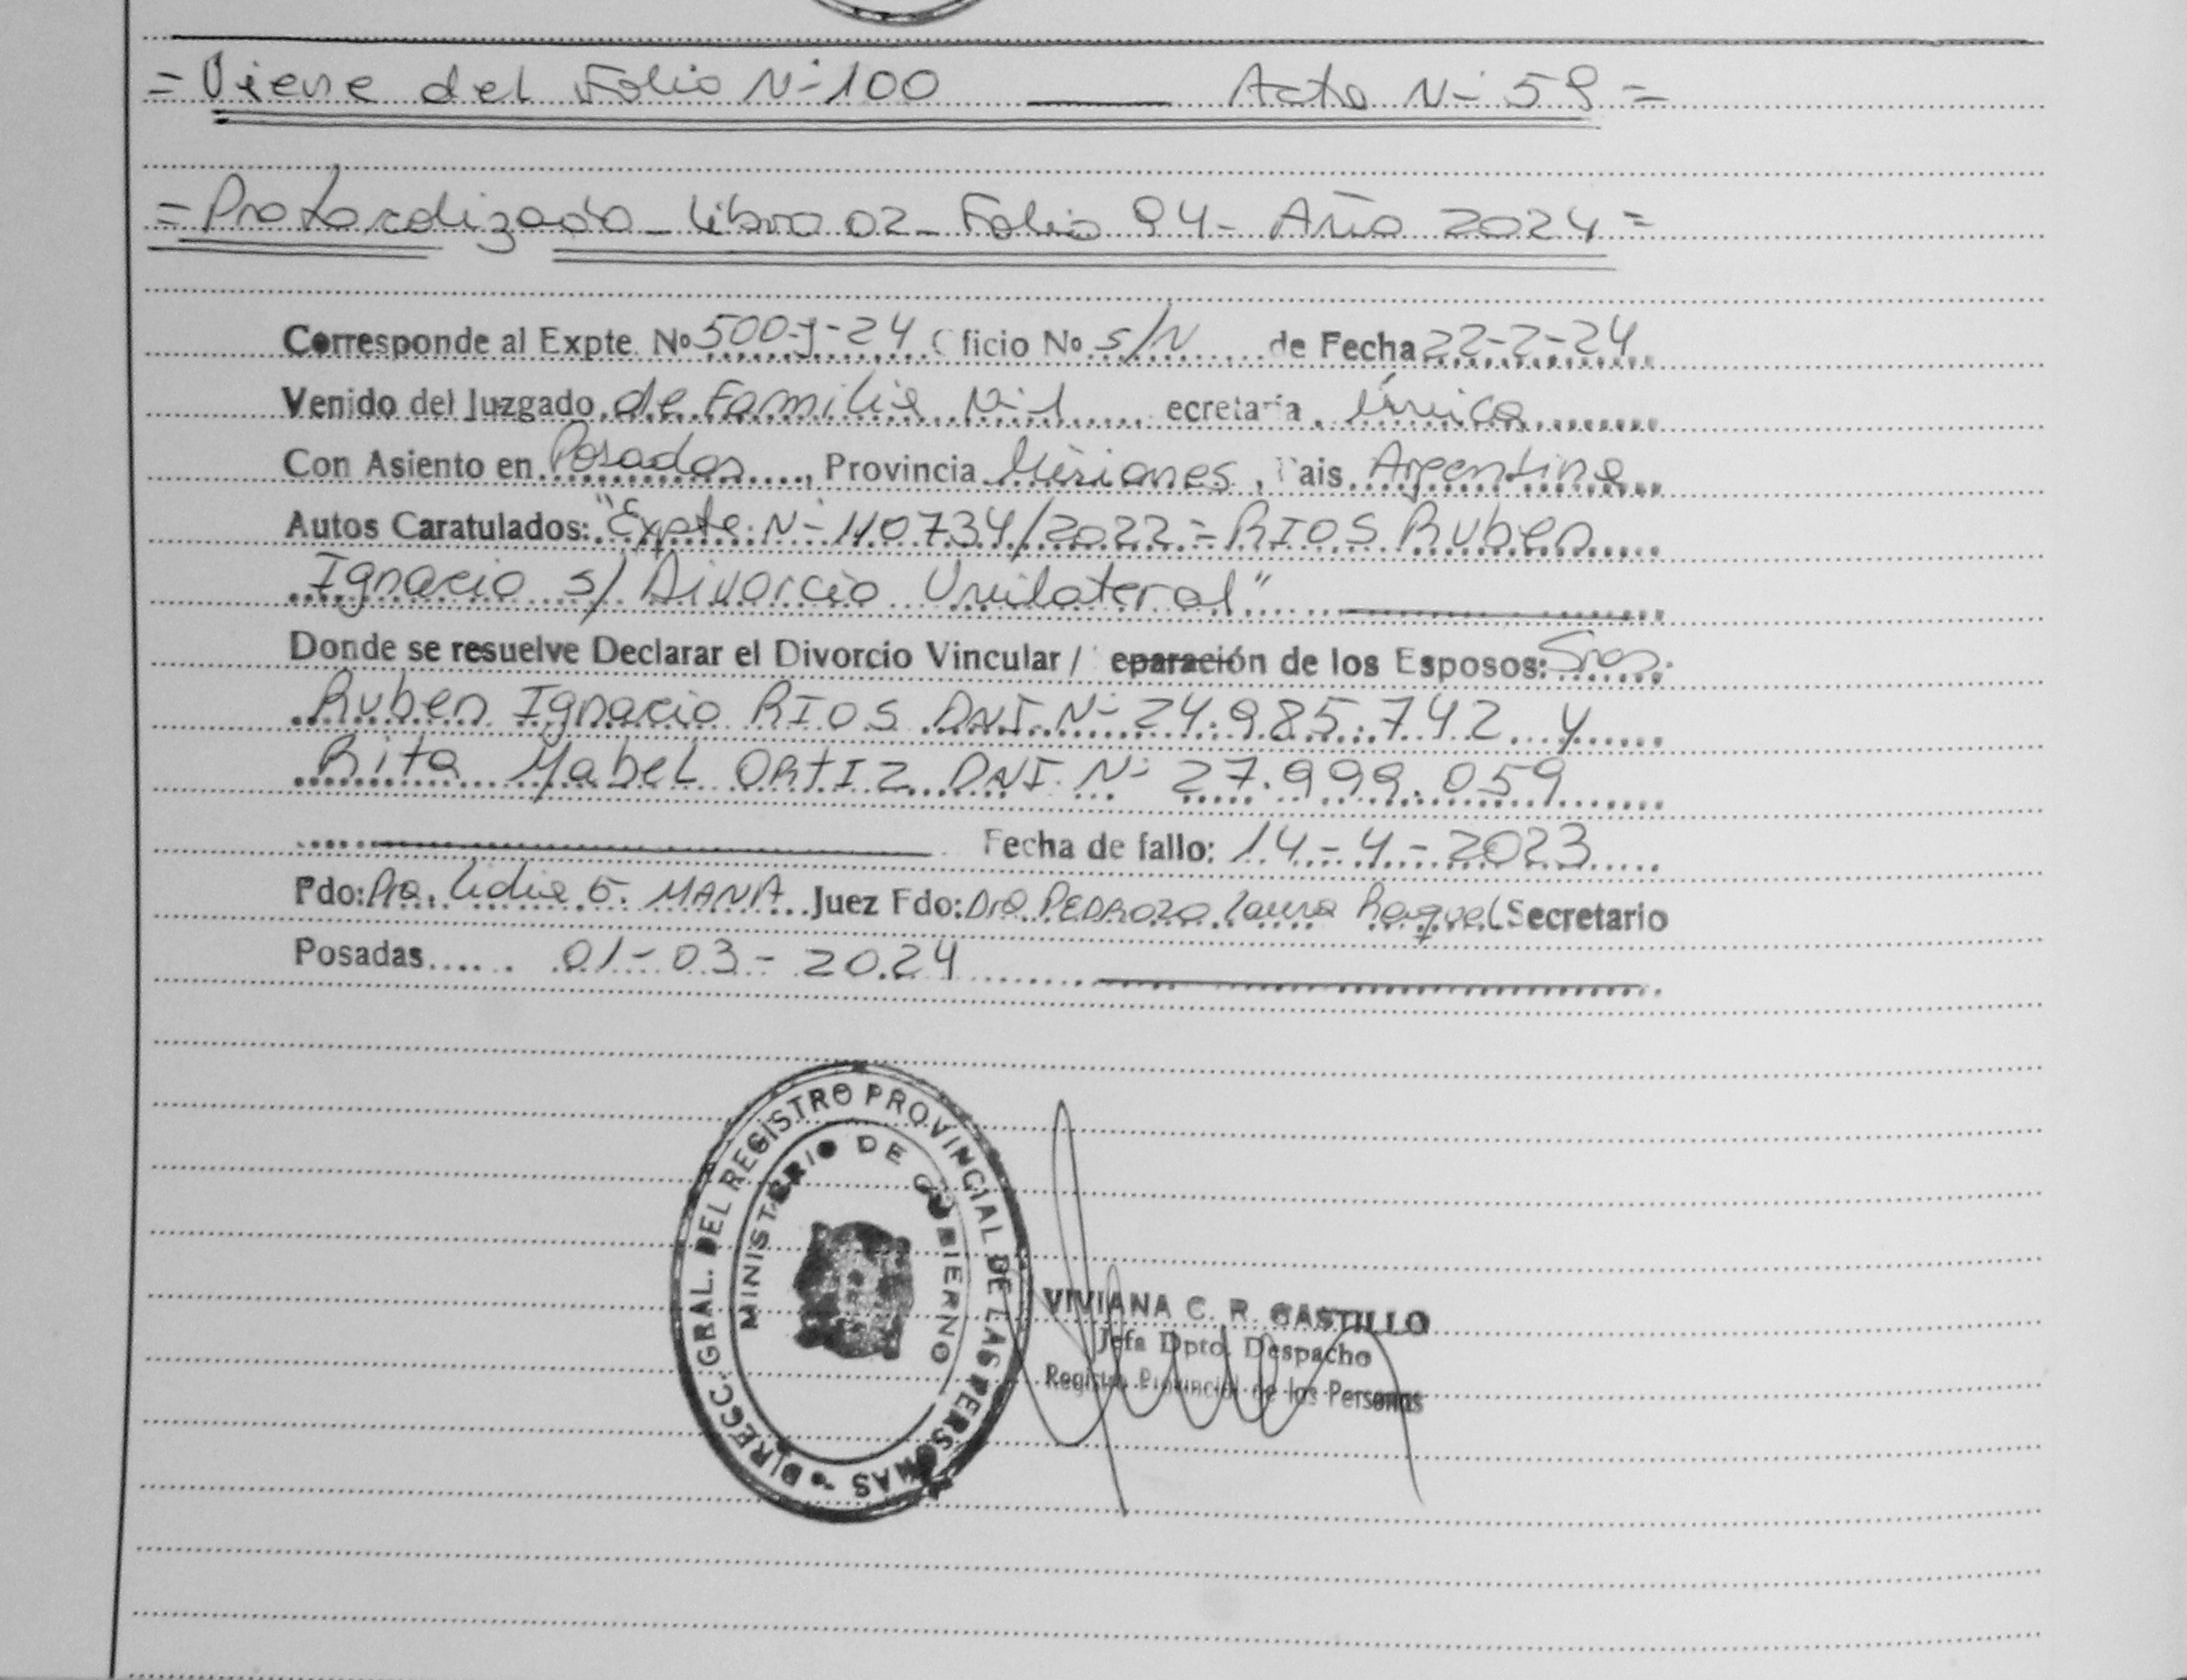 = Viene del Folio N- 100 ——— Acta N- 59 =
= Protocolizado - Libro 02 - Folio 94 - Año 2024 =
Corresponde al Expte Nº 500-J-24 Oficio Nº s/N de Fecha 22-2-24
Venido del Juzgado de Familia N-1 ecretaría única
Con Asiento en Posadas, Provincia Misiones, Pais Argentina
Autos Caratulados: "Expte. N- 110734/2022 = RIOS Ruben
Ignacio s/ Divorcio Unilateral"
Donde se resuelve Declarar el Divorcio Vincular / eparación de los Esposos: Sres.
Ruben Ignacio RIOS DNI. N- 24.985.742 y
Rita Mabel ORTIZ DNI. N- 27.999.059
Fecha de fallo: 14-4-2023
Fdo: Dra. Lidia E. MANA Juez Fdo: Dra PEDROZO Laura Raquel Secretario
Posadas 01-03-2024
DIRECC. GRAL. DEL REGISTRO PROVINCIAL DE LAS PERSONAS
MINISTERIO DE GOBIERNO
VIVIANA C. R. CASTILLO
Jefa Dpto. Despacho
Registro Provincial de las Personas